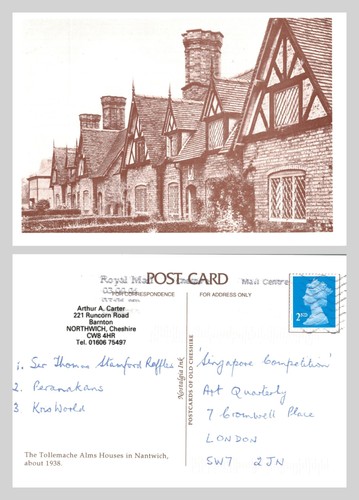 Royal Mail
Mail Centre
POST CARD
FOR CORRESPONDENCE
FOR ADDRESS ONLY
Arthur A. Carter
221 Runcorn Road
Barnton
NORTHWICH, Cheshire
CW8 4HR
Tel. 01606 75497
2ND
1. Sir Thomas Stamford Raffles
2. Peranakans
3 KrisWorld
The Tollemache Alms Houses in Nantwich,
about 1938.
Nostalgia Ink
POSTCARDS OF OLD CHESHIRE
'Singapore Competition'
Art Quarterly
7 Cromwell Place
LONDON
SW7 2JN